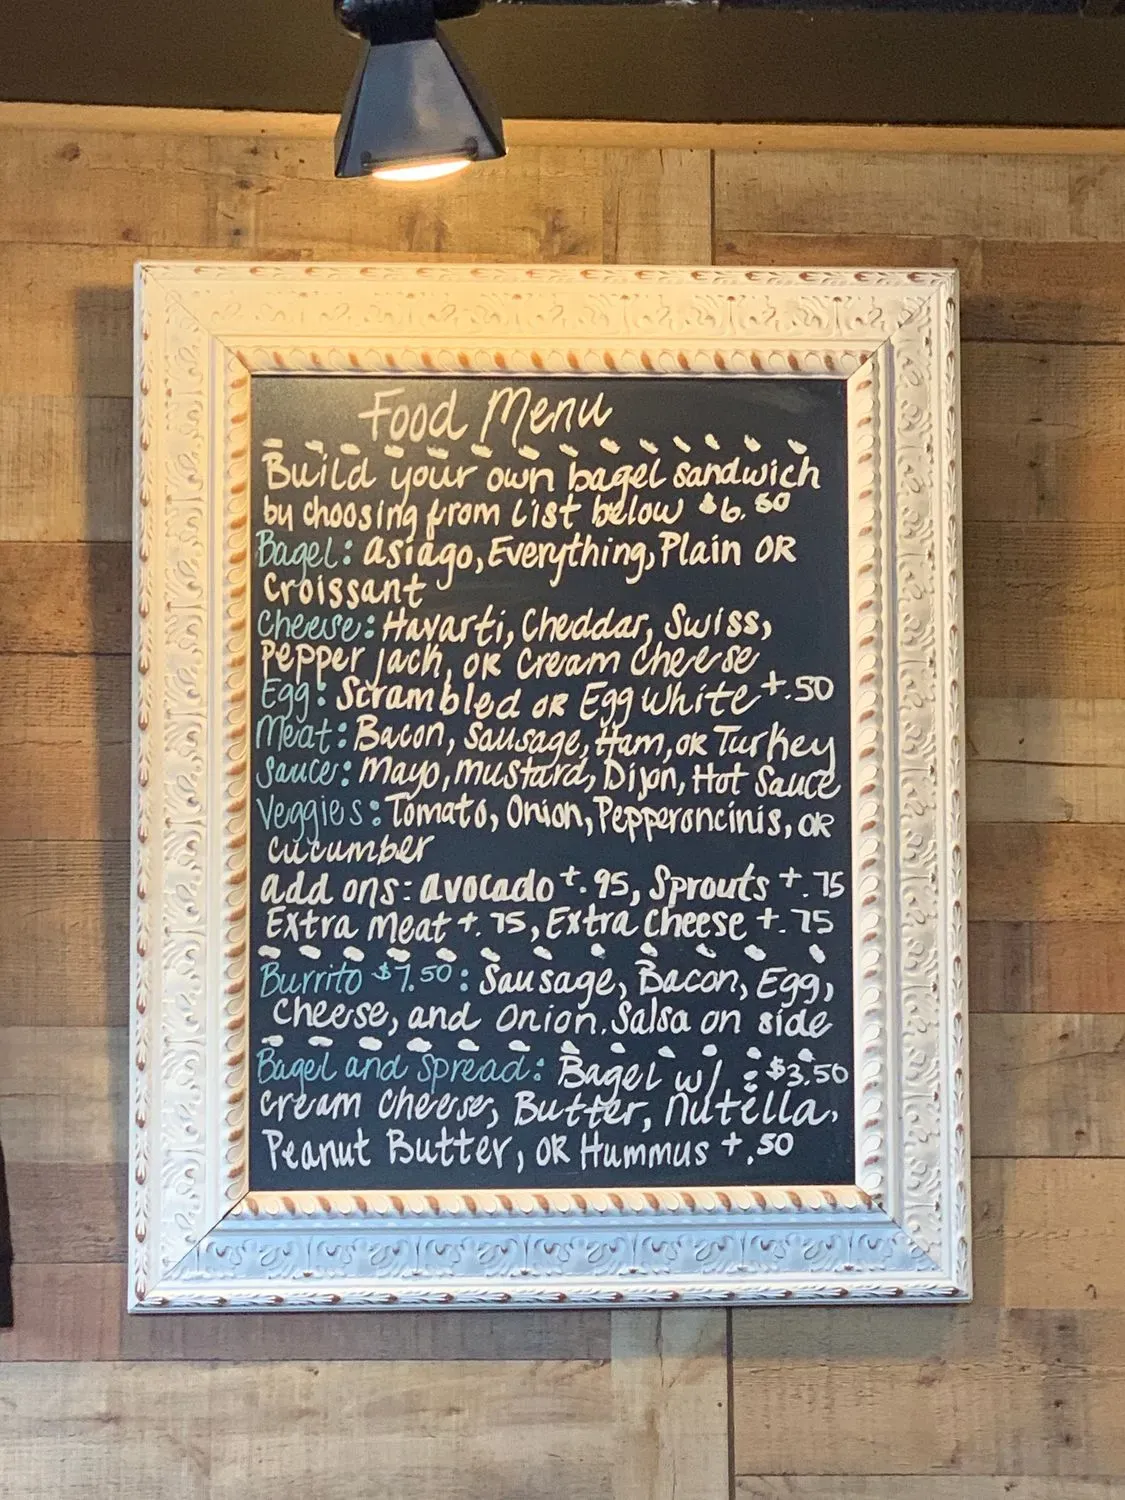 Food Menu
Build your own bagel sandwich
by choosing from list below $6.50
Bagel: asiago, Everything, Plain OR
Croissant
Cheese: Havarti, Cheddar, Swiss,
Pepper jack, OR Cream Cheese
Egg: Scrambled OR Egg White +.50
Meat: Bacon, Sausage, Ham, OR Turkey
Sauce: Mayo, mustard, Dijon, Hot Sauce
Veggies: Tomato, Onion, Pepperoncinis, OR
cucumber
add ons: avocado +.95, Sprouts +.75
Extra Meat +.75, Extra Cheese +.75
Burrito $7.50: Sausage, Bacon, Egg,
Cheese, and onion. Salsa on side
Bagel and Spread: Bagel w/ : $3.50
cream cheese, Butter, Nutella,
Peanut Butter, OR Hummus +.50